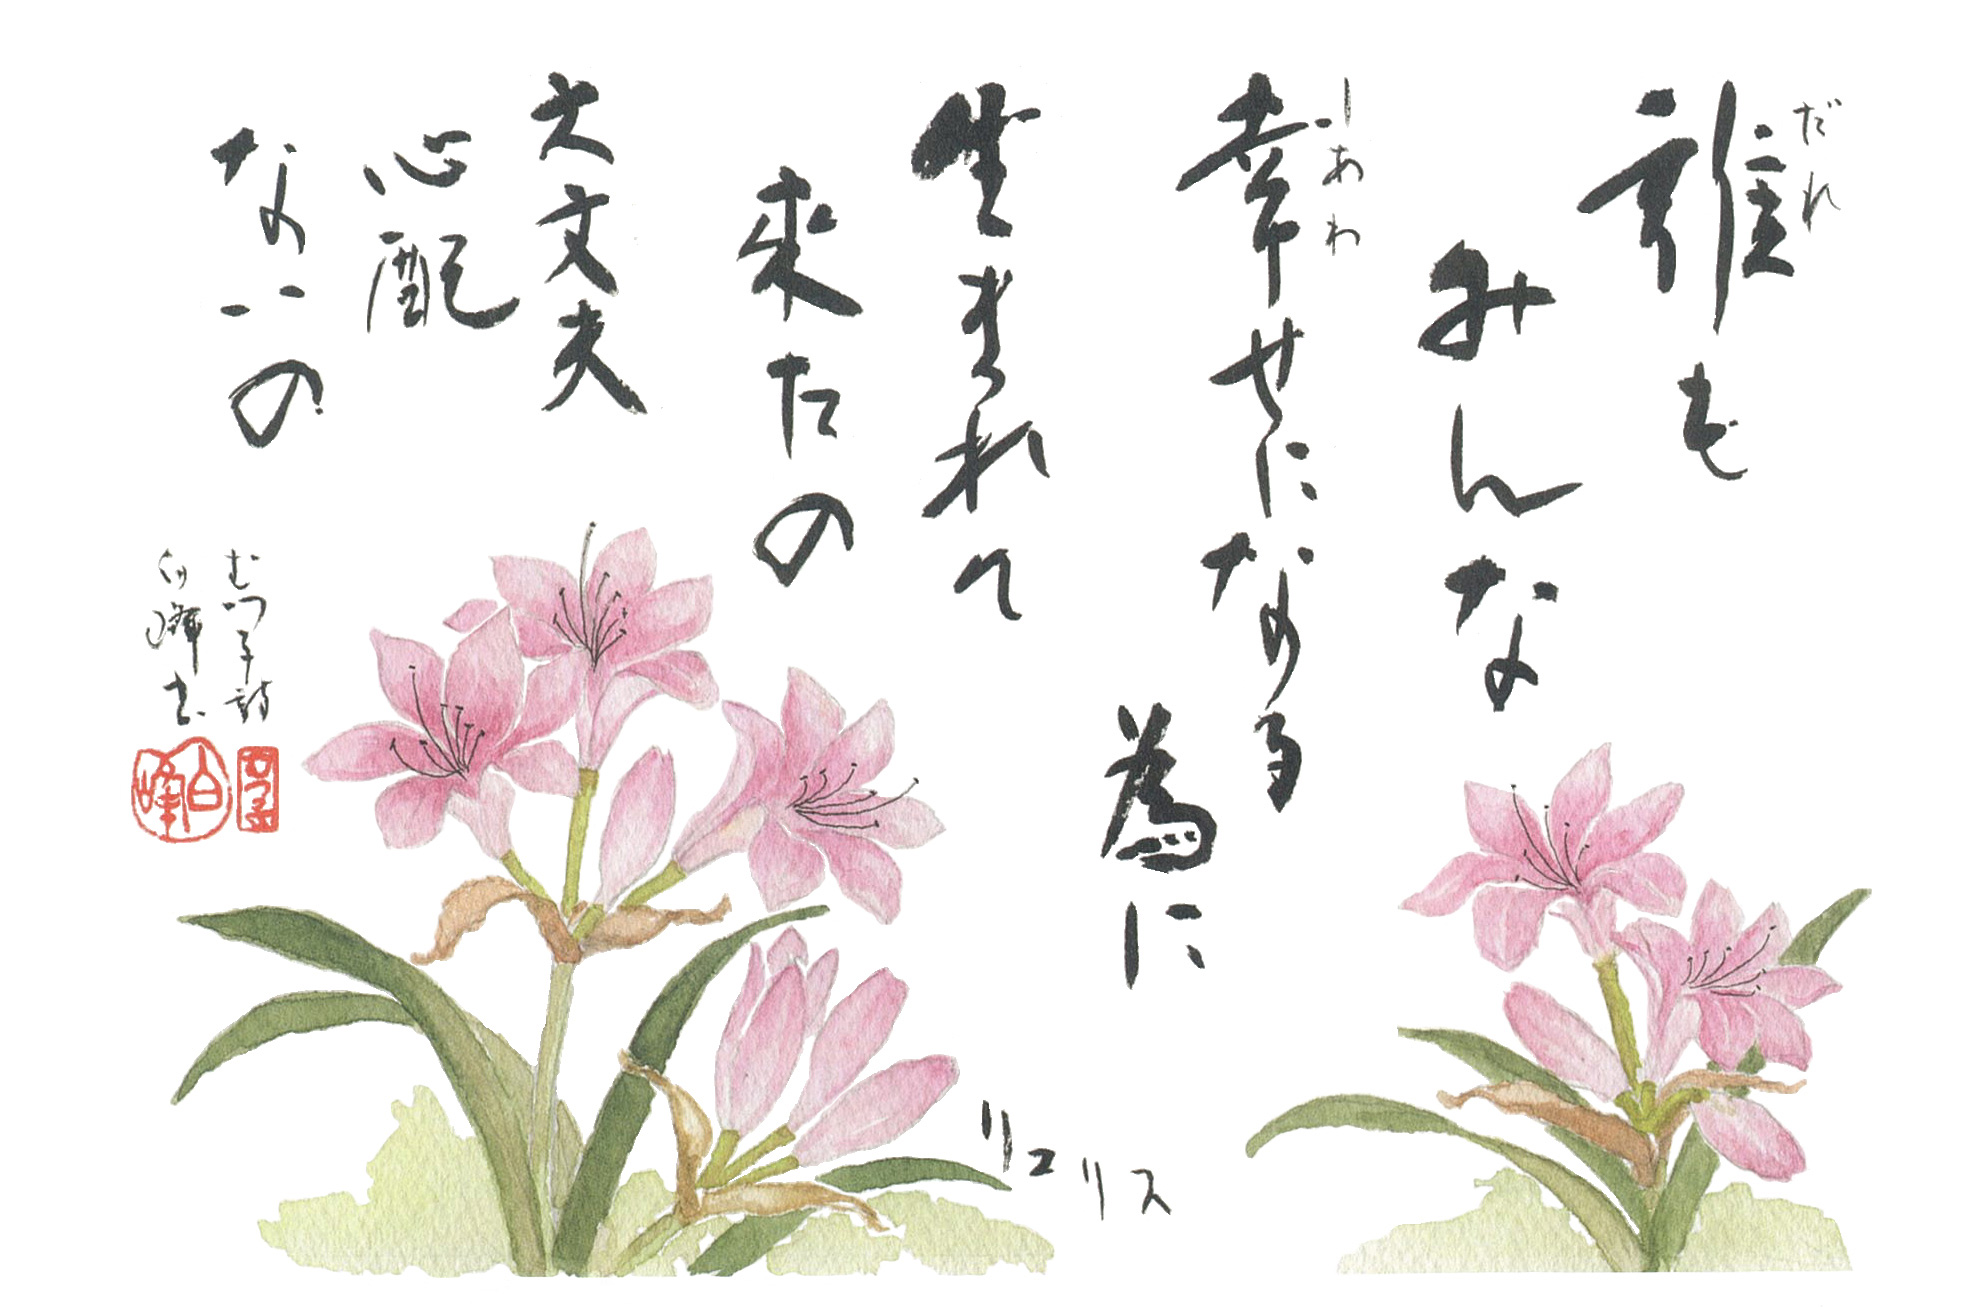 誰も
だれ
みんな
幸せになる
しあわ
為に
生まれて
来たの
大丈夫
心配
ないの
むつ子詩
白峰書
白峰
リコリス